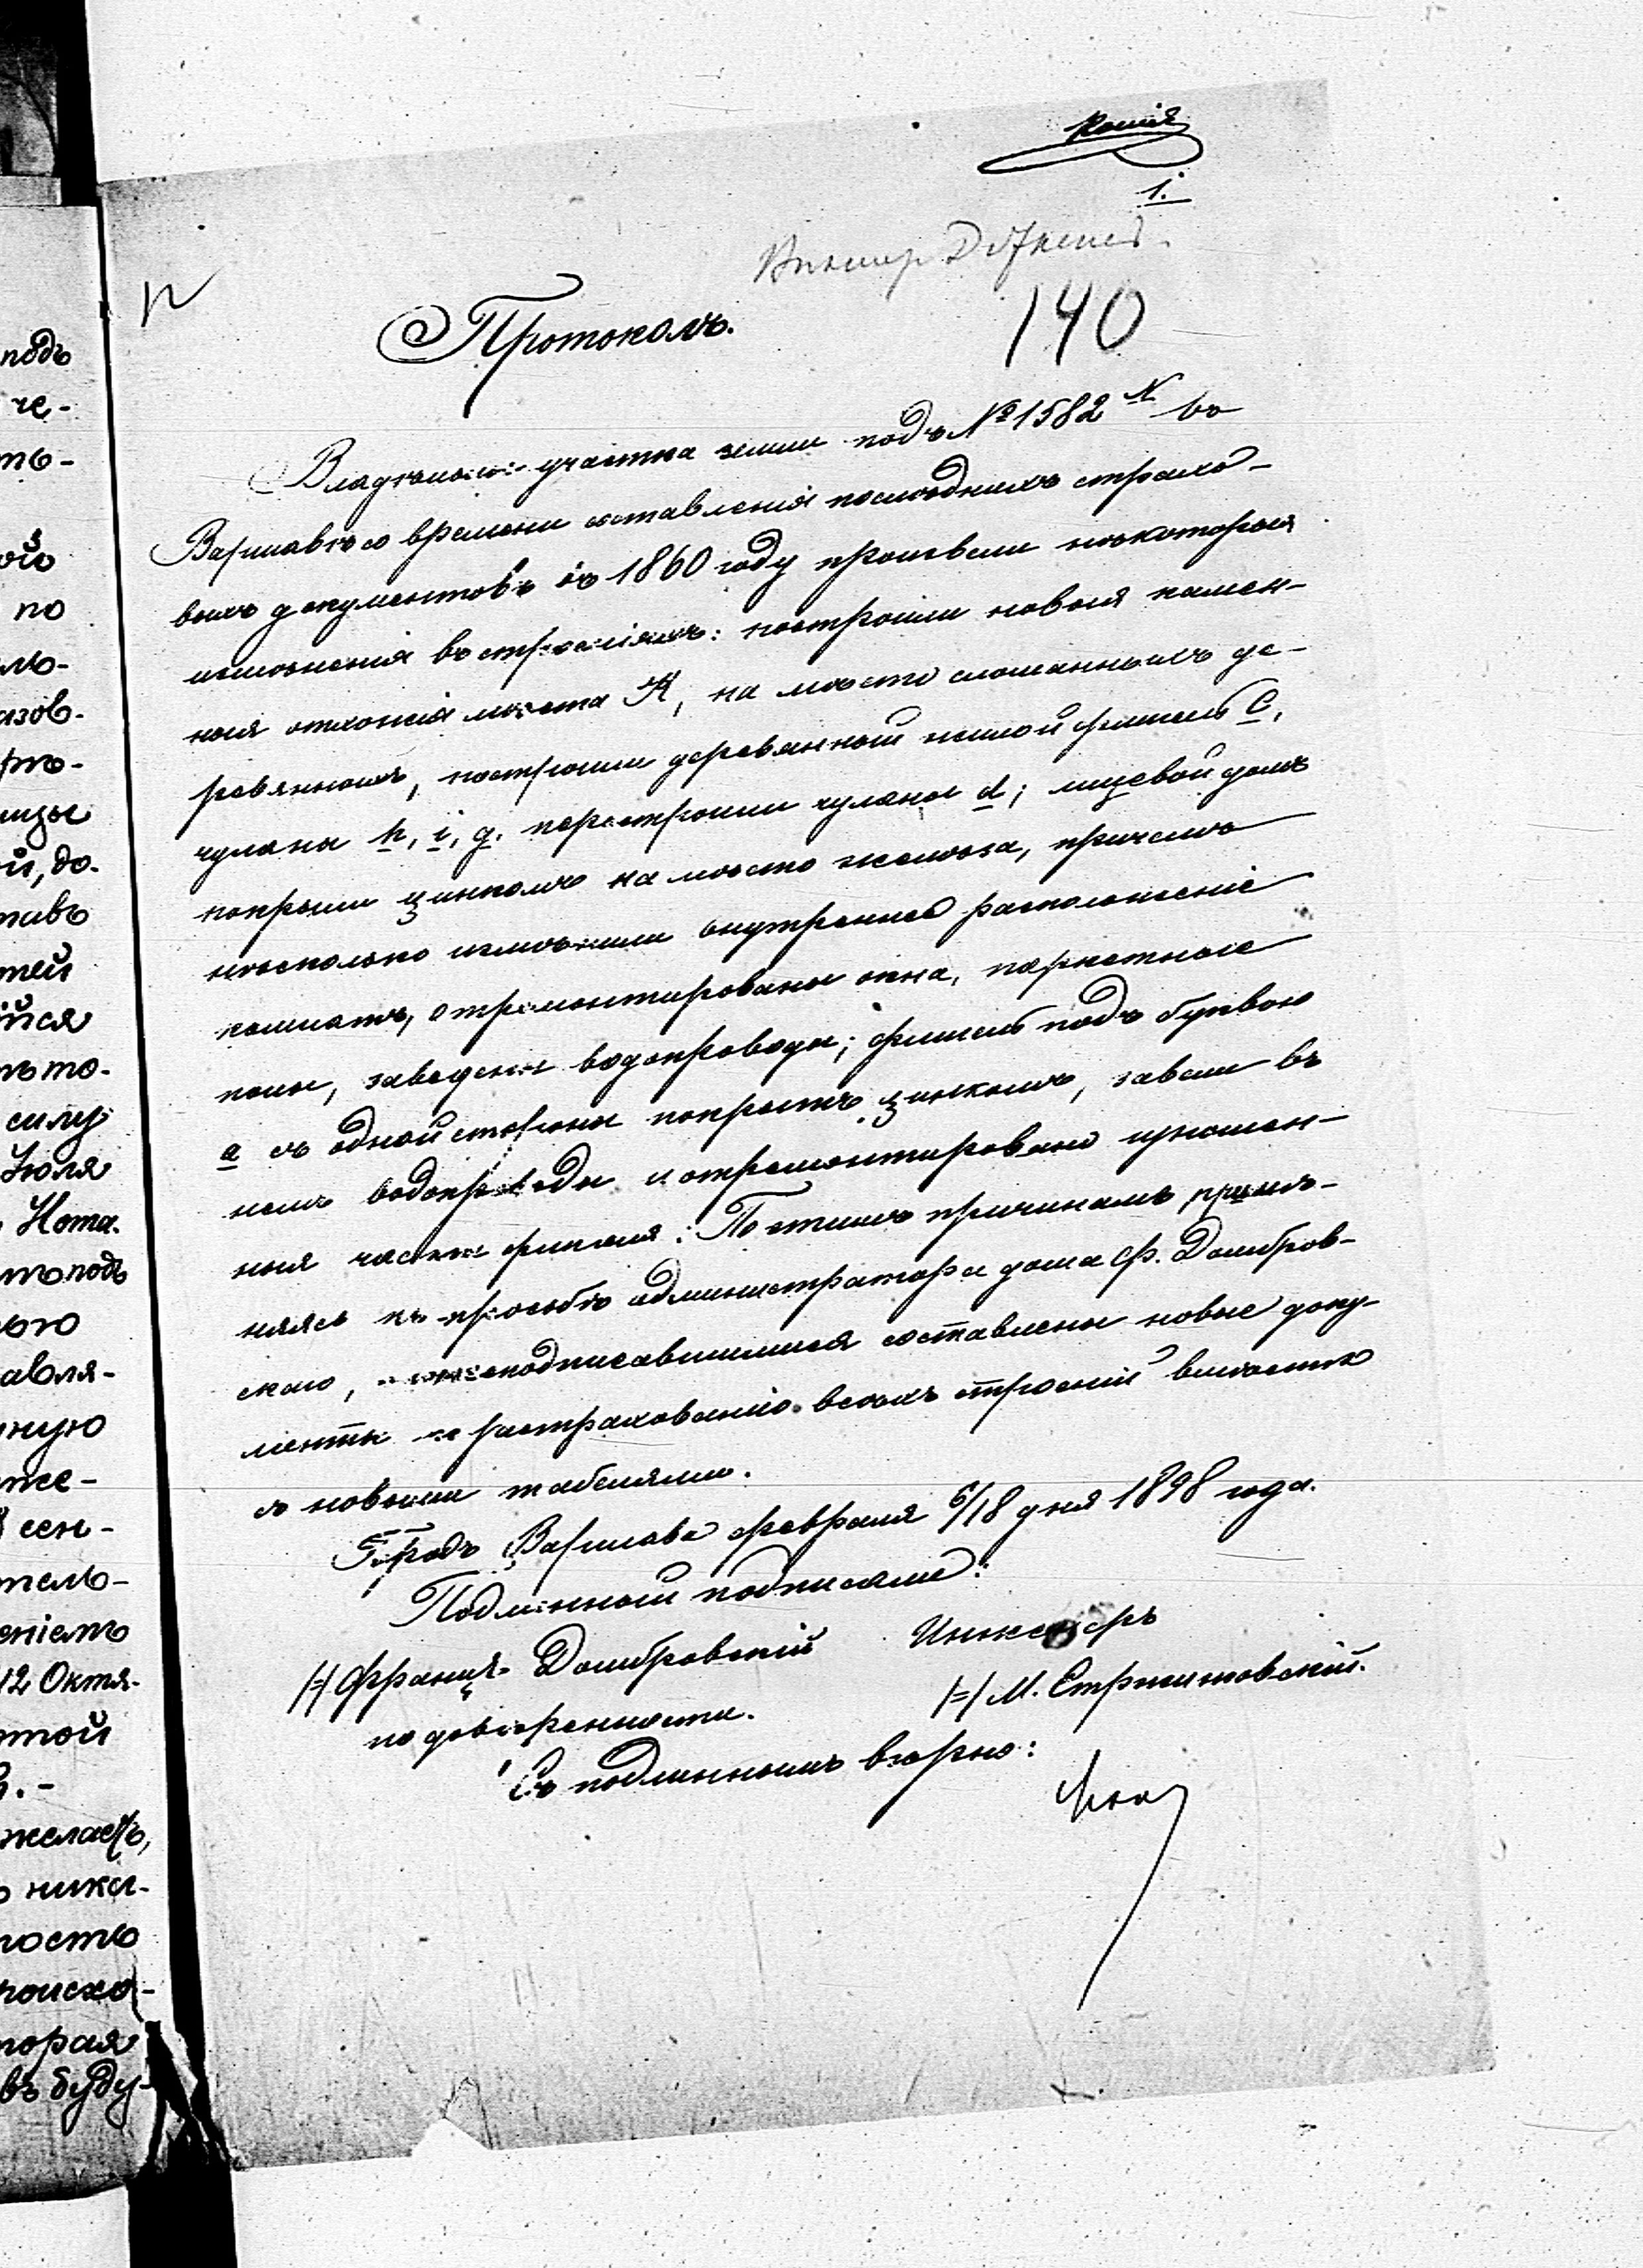 Копія
1.
140
Протоколъ.
Владѣльцы участка земли подъ № 1582 N въ
Варшавѣ со времени составленія послѣднихъ страхо-
выхъ документовъ въ 1860 году произвели нѣкоторыя
измѣненія въ строеніяхъ: построили новыя камен-
ныя отхожія мѣста А, на мѣсто сломанныхъ де-
ревянныхъ, построили деревянный жилой флигель С,
чуланы h, i, g. перестроили чуланы d; лицевой домъ
покрыли цинкомъ на мѣсто желѣза, причемъ
нѣсколько измѣнили внутреннее расположеніе
комнатъ, отремонтированы окна, паркетные
полы, заведены водопроводы; флигель подъ буквою
а съ одной стороны покрытъ цинкомъ, завели въ
немъ водопроводы и отремонтировано изношен-
ныя части флигеля. По этимъ причинамъ, примѣ-
няясь къ просьбѣ администратора дома Ф. Домбров-
скаго, нижеподписавшимися составлены новые доку-
менты къ застрахованію всѣхъ строеній вмѣстѣ
съ новыми табелями.
Городъ Варшава февраля 6/18 дня 1898 года.
Подлинный подписали:
/=/ Францъ Домбровскій Инженеръ
по довѣренности. /=/ М. Стржижовскій.
Съ подлиннымъ вѣрно:
подъ
че-
ть-
по
азов-
ицы
ой, до-
тавъ
тей
йся
силу
Іюля
Нота-
тъ подъ
авля-
ную
же-
сен-
тель-
еніемъ
12 Октя-
той
желаетъ,
ника-
ность
роисхо-
торая
въ буду-